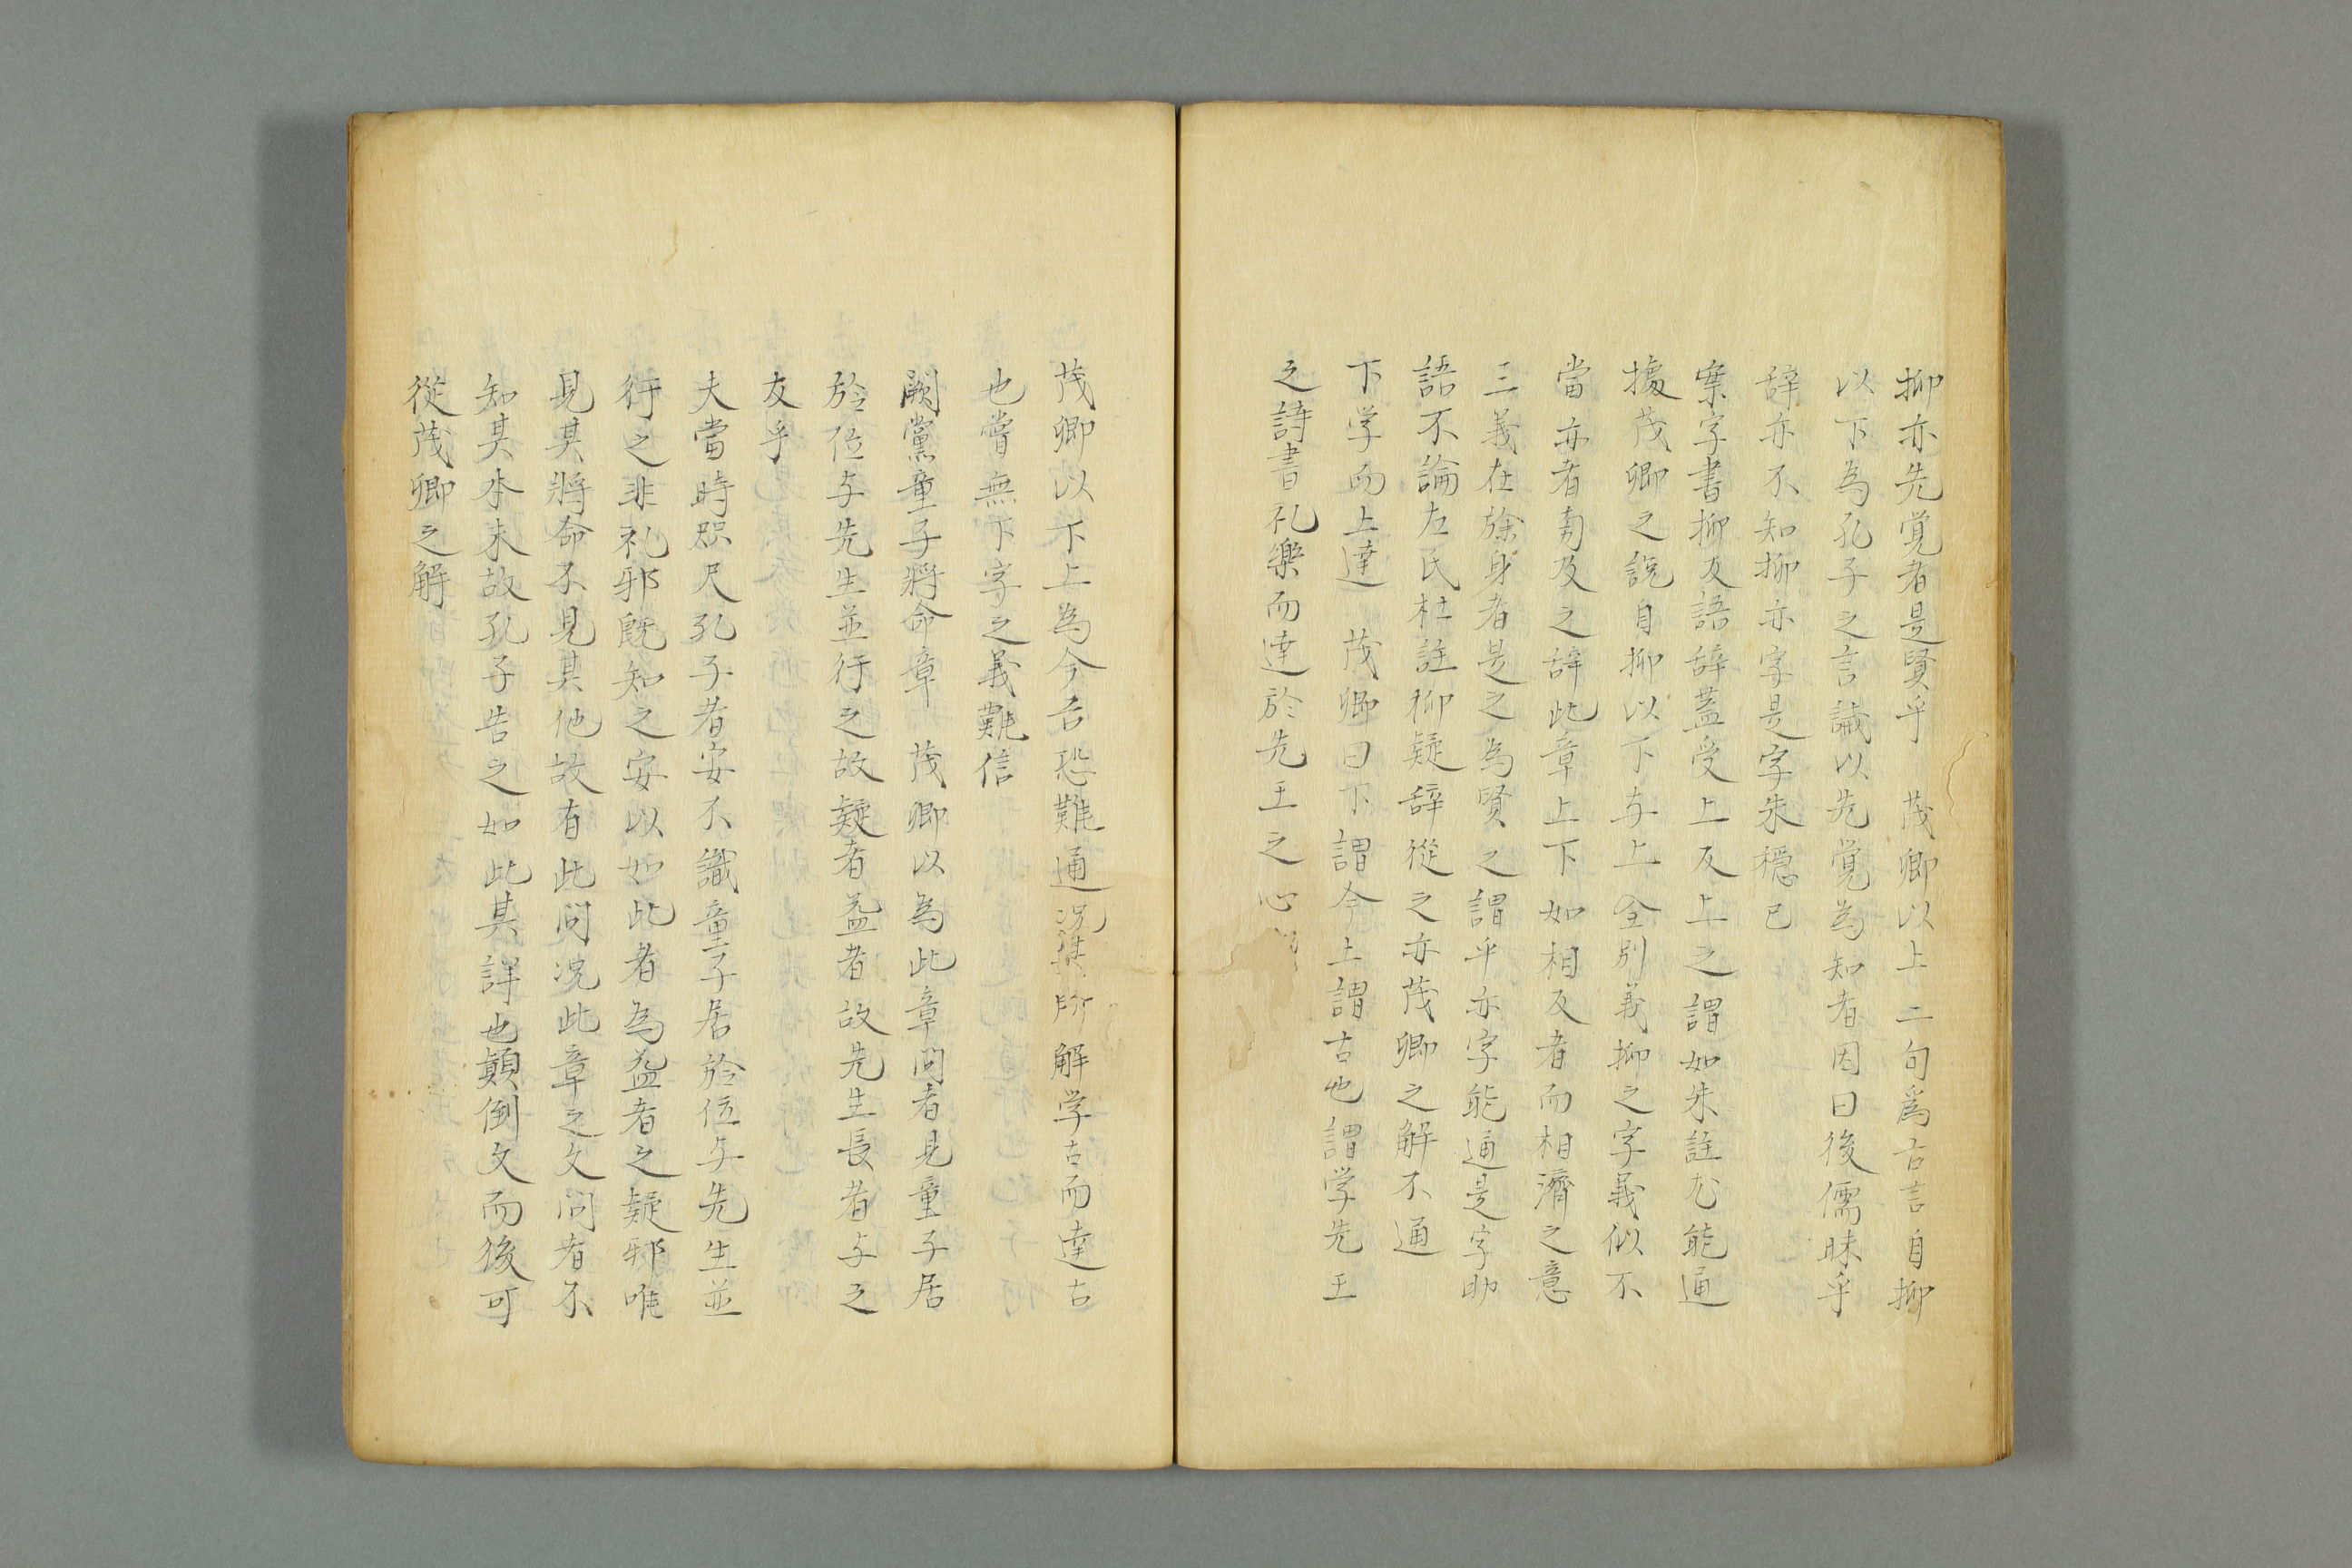 抑亦先覚者是賢乎　茂卿以上二句爲古言自抑
以下為孔子之言誡以先覚為知者因曰後儒昧乎
辞亦不知抑亦字是字朱穏已
案字書抑反語辞蓋受上反上之謂如朱註尤能通
據茂卿之說自抑以下与上全別義抑之字義似不
當亦者旁及之辞此章上下如相反者而相濟之意
三義在於身者是之為賢之謂乎亦字能通是字助
語不論左氏杜註抑疑辞從之亦茂卿之解不通
下学而上達　茂卿曰下謂今上謂古也謂学先王
之詩書礼樂而達於先王之心
茂卿以下上為今古恐難通况其所解学古而達古
也嘗無下字之義難信
闕黨童子將命章　茂卿以為此章問者見童子居
於位与先生並行之故疑者益者故先生長者与之
友乎
夫當時咫尺孔子者安不識童子居於位与先生並
行之非礼邪既知之安以如此者為益者之疑邪唯
見其將命不見其他故有此問况此章之文問者不
知其本末故孔子告之如此其詳也顛倒文而後可
從茂卿之解